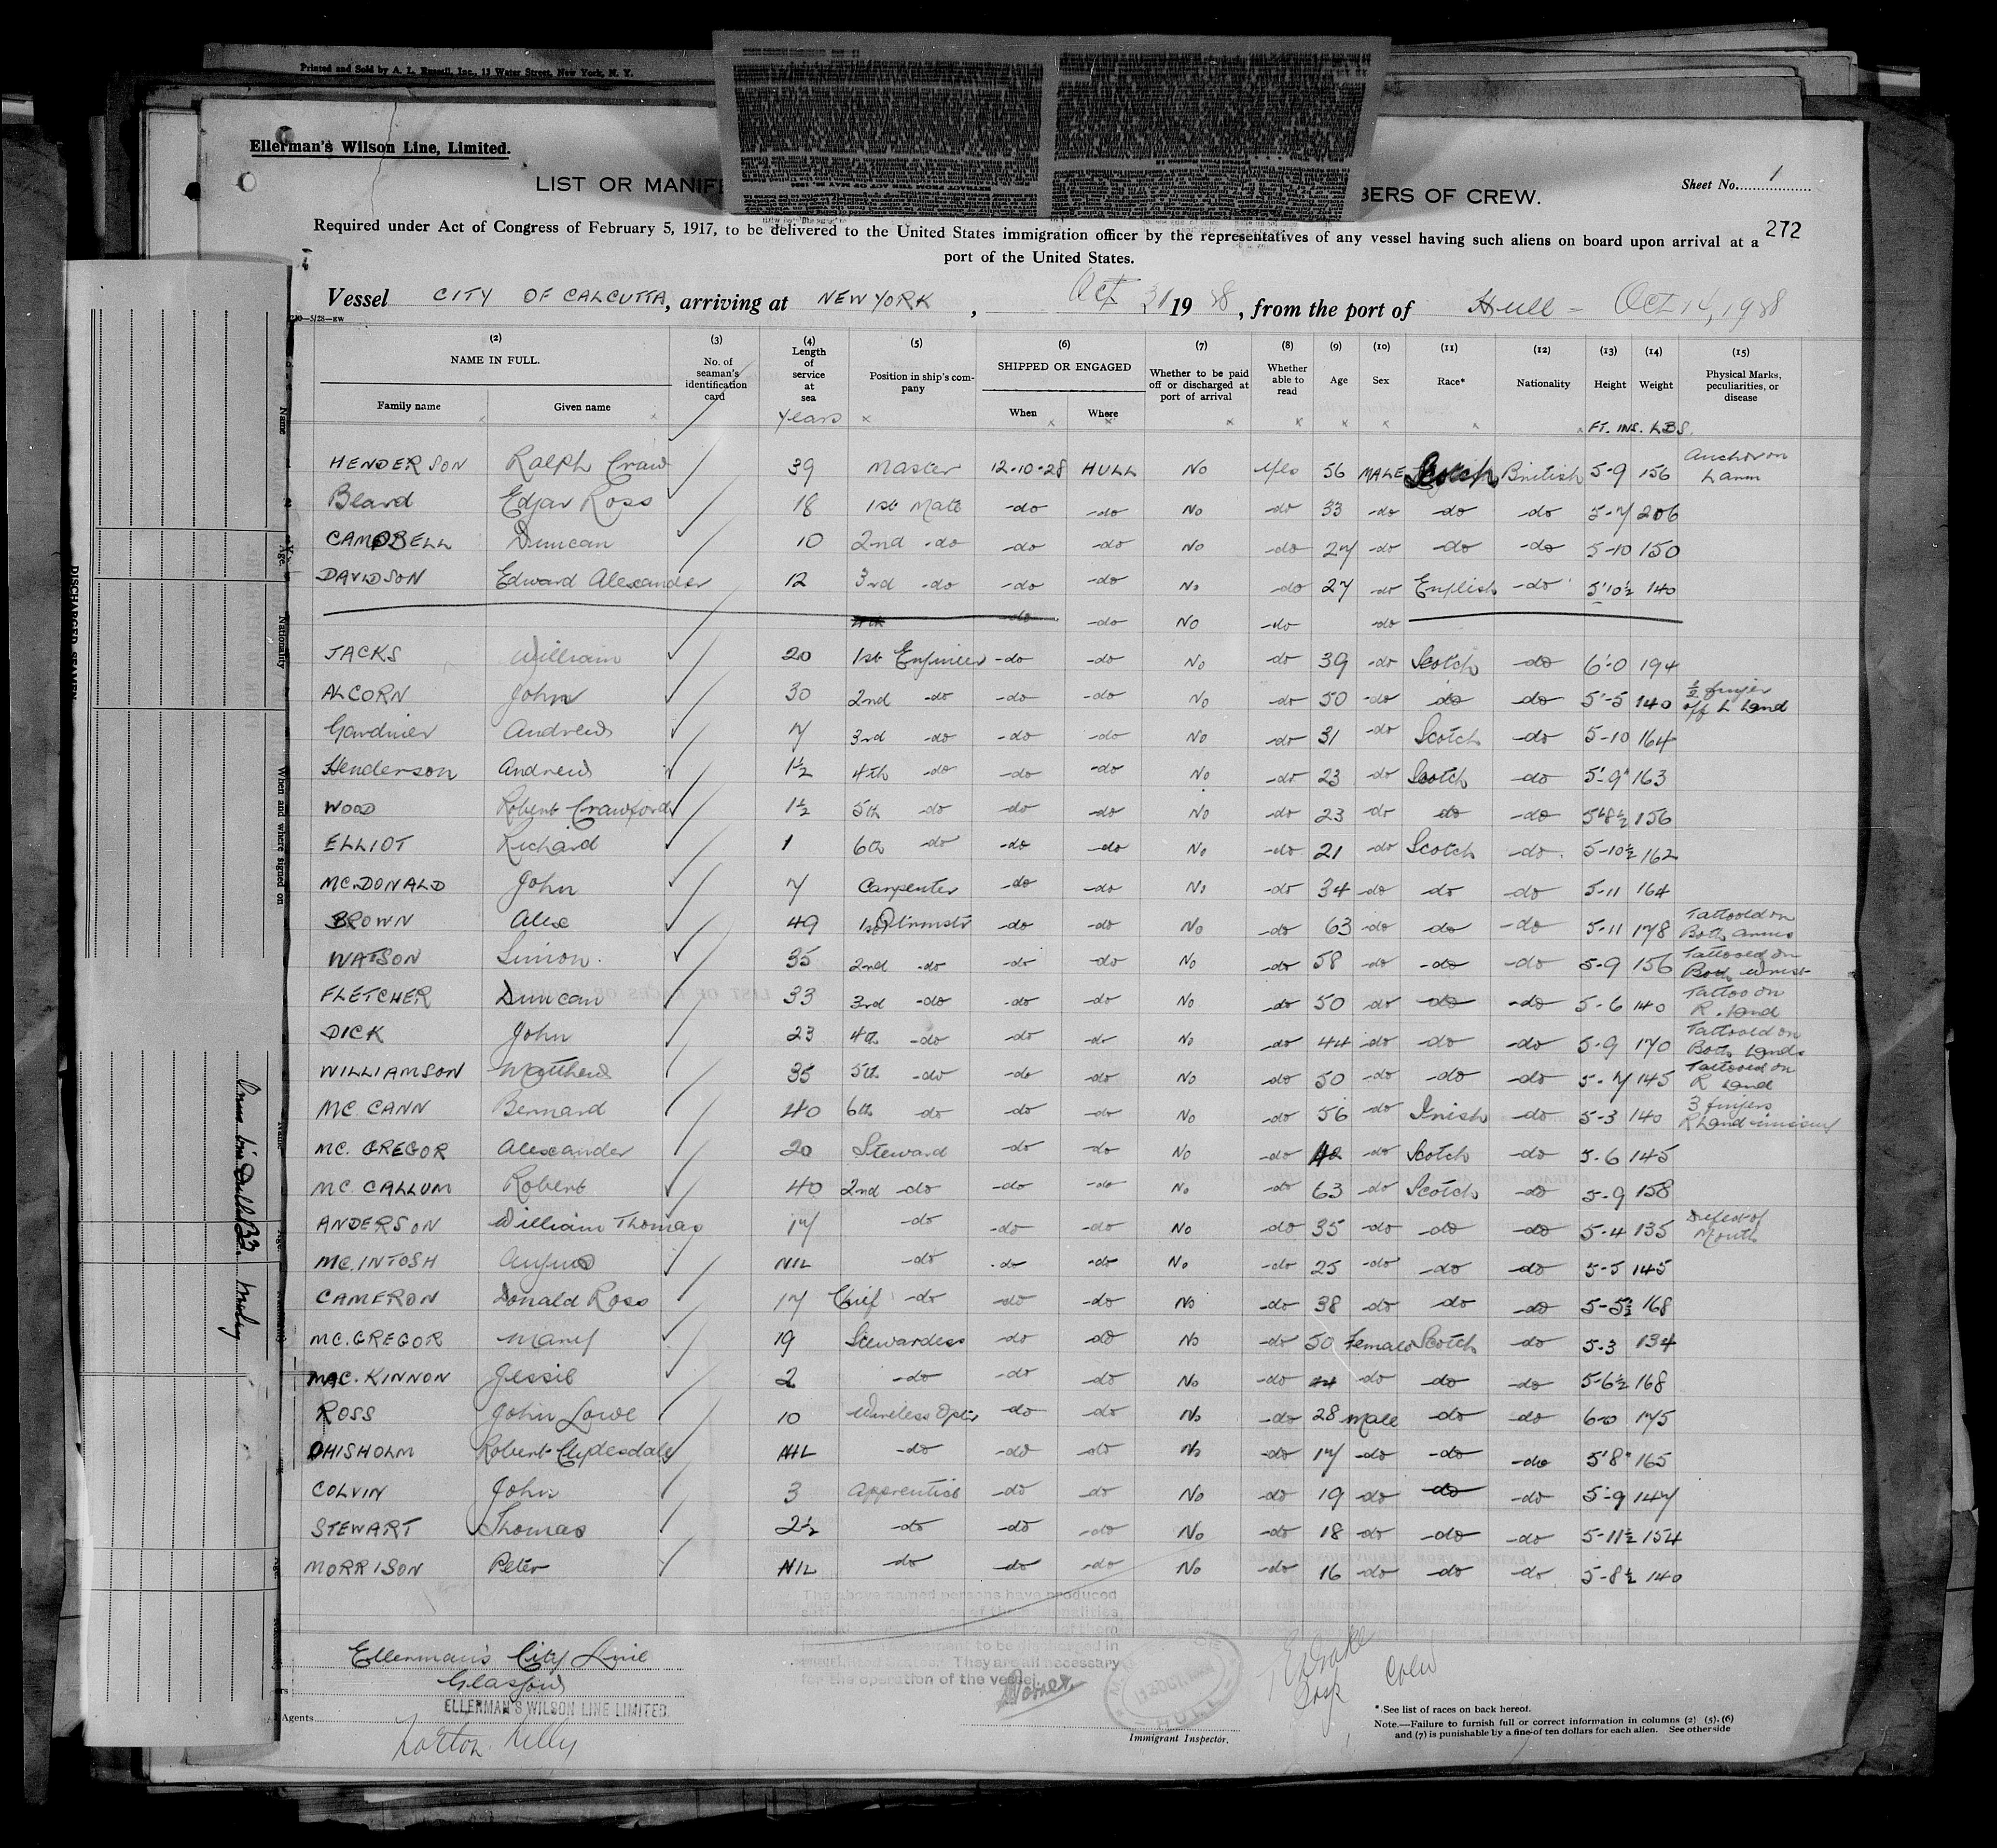 Printed and Sold by A. L. Russell, Inc., 13 Water Street, New York, N. Y.
EXTRACT FROM THE ACT OF MAY 26, 1924
Ellerman's Wilson Line, Limited.
LIST OR MANIF
BERS OF CREW.
Sheet No. 1
272
Required under Act of Congress of February 5, 1917, to be delivered to the United States immigration officer by the representatives of any vessel having such aliens on board upon arrival at a
port of the United States.
Vessel CITY OF CALCUTTA, arriving at NEW YORK, Oct 31 1928, from the port of Hull - Oct 14, 1928
(2) (3) (4) (5) (6) (7) (8) (9) (10) (11) (12) (13) (14) (15)
NAME IN FULL. No. of seaman's identification card Length of service at sea Position in ship's company SHIPPED OR ENGAGED Whether to be paid off or discharged at port of arrival Whether able to read Age Sex Race* Nationality Height Weight Physical Marks, peculiarities, or disease
Family name Given name Years When Where FT. INS. LBS.
HENDERSON Ralph Craw 39 Master 12-10-28 HULL No Yes 56 MALE Scotch British 5-9 156 Anchor on L arm
Beard Edgar Ross 18 1st Mate -do -do No -do 33 -do -do -do 5-7 206
CAMPBELL Duncan 10 2nd -do -do -do No -do 27 -do -do -do 5-10 150
DAVIDSON Edward Alexander 12 3rd -do -do -do No -do 27 -do English -do 5'10½ 140
4th -do -do No -do -do
JACKS William 20 1st Engineer -do -do No -do 39 -do Scotch -do 6'-0 194
ALCORN John 30 2nd -do -do -do No -do 50 -do do -do 5'-5 140 ½ finger off L Hand
Gardner Andrew 7 3rd -do -do -do No -do 31 -do Scotch -do 5-10 164
Henderson Andrew 1½ 4th -do -do -do No -do 23 -do Scotch -do 5'-9" 163
WOOD Robert Crawford 1½ 5th -do -do -do No -do 23 -do do -do 5'8½ 156
ELLIOT Richard 1 6th -do -do -do No -do 21 -do Scotch -do 5-10½ 162
MC.DONALD John 7 Carpenter -do -do No -do 34 -do do -do 5-11 164
BROWN Alex 49 -do -do No -do 63 -do do -do 5-11 178 Tattooed on Both arms
WATSON Simon 35 2nd -do -do -do No -do 58 -do -do -do 5-9 156 Tattooed on Both Wrist
FLETCHER Duncan 33 3rd -do -do -do No -do 50 -do do -do 5-6 140 Tattoo on R. Hand
DICK John 23 4th -do -do -do No -do 44 -do -do -do 5-9 170 Tattooed on Both Hands
WILLIAMSON Matthew 35 5th -do -do -do No -do 50 -do -do -do 5-7 145 Tattooed on R Hand
MC CANN Bernard 40 6th do -do -do No -do 56 -do Irish -do 5-3 140 3 fingers R Hand
MC. GREGOR Alexander 20 Steward -do -do No -do -do Scotch -do 5-6 145
MC. CALLUM Robert 40 2nd -do -do -do No -do 63 -do Scotch -do 5-9 158
ANDERSON William Thomas 17 -do -do -do No -do 35 -do -do -do 5-4 135 Defect of Mouth
MC.INTOSH Angus NIL -do -do -do No -do 25 -do -do -do 5-5 145
CAMERON Donald Ross 17 Chief -do -do -do No -do 38 -do do -do 5-5½ 168
MC.GREGOR Mary 19 Stewardess -do do No -do 50 Female Scotch -do 5-3 134
MAC.KINNON Jessie 2 -do -do -do No -do 44 -do do -do 5-6½ 168
ROSS John Lowe 10 Wireless Opt'r -do -do No -do 28 Male -do -do 6-0 175
CHISHOLM Robert Clydesdale NIL -do -do -do No -do 17 -do -do -do 5'8" 165
COLVIN John 3 Apprentice -do -do No -do 19 -do do -do 5-9 147
STEWART Thomas 2½ -do -do -do No -do 18 -do -do -do 5-11½ 154
MORRISON Peter NIL do do -do No -do 16 -do -do -do 5-8½ 140
The above named persons have produced
to be
They are all necessary
for the operation of the vessel.
Ellerman's City Line
Glasgow
ELLERMAN'S WILSON LINE LIMITED.
Agents
Norton. Lilly
Immigrant Inspector.
HULL
*See list of races on back hereof.
Note.—Failure to furnish full or correct information in columns (2) (5), (6)
and (7) is punishable by a fine of ten dollars for each alien. See other side
DISCHARGED SEAMEN
Name
Age.
Nationality
When and where signed on